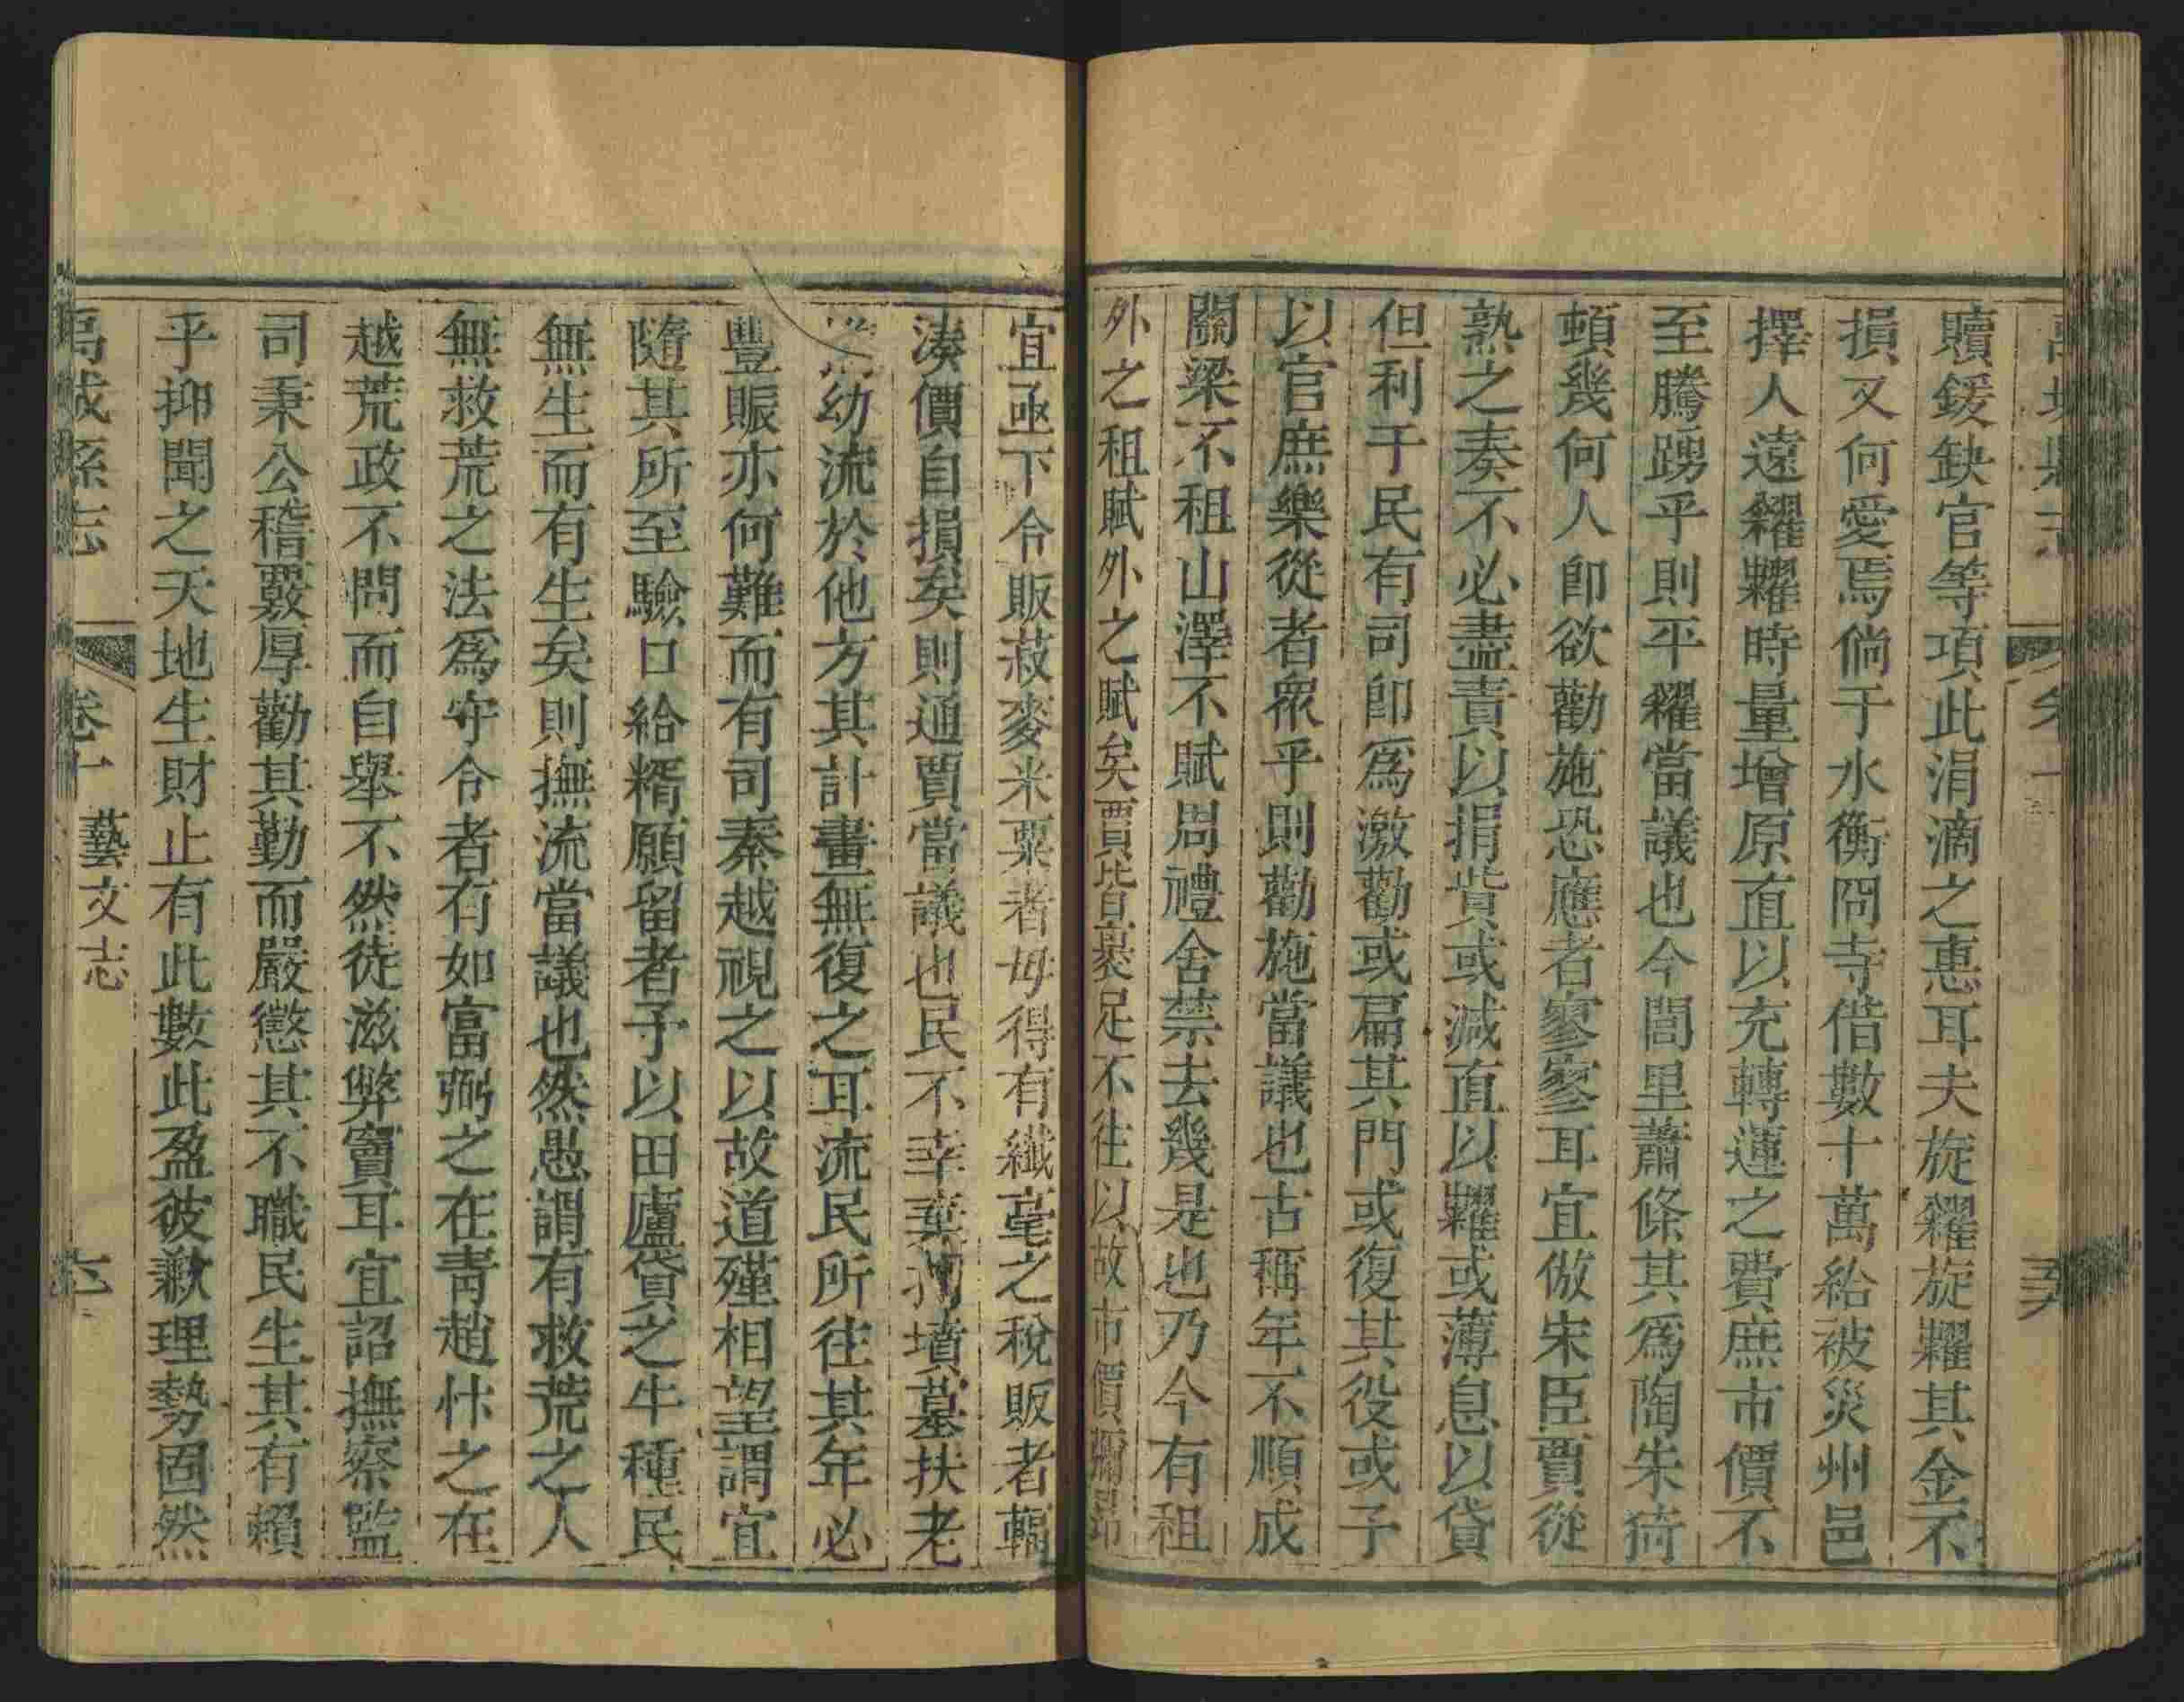 贖鍰缺官等項此涓滴之惠耳夫旋糴旋糶其金不
損又何愛焉倘于水衡冏寺借數十萬給被災州邑
擇人遠糴糶時量增原直以充轉運之費庶市價不
至騰踴乎則平糴當議也今閭里蕭條其爲陶朱猗
頓幾何人卽欲勸施恐應者寥寥耳宜倣宋臣賈從
熟之奏不必盡責以捐貲或減直以糶或薄息以貸
但利于民有司卽爲激勸或扁其門或復其役或予
以官庶樂從者衆乎則勸施當議也古稱年不順成
關梁不租山澤不賦周禮舍禁去幾是也乃今有租
外之租賦外之賦矣賈皆裹足不往以故市價彌昂
宜亟下令販菽麥米粟者毋得有纖毫之稅販者輻
湊價自損矣則通賈當議也民不幸棄墳墓扶老
幼流於他方其計畫無復之耳流民所往其年必
豐賑亦何難而有司秦越視之以故道殣相望謂宜
隨其所至驗口給糈願留者予以田廬貸之牛種民
無生而有生矣則撫流當議也然愚謂有救荒之人
無救荒之法爲守令者有如富弼之在青趙忭之在
越荒政不問而自舉不然徒滋弊竇耳宜詔撫察監
司秉公稽覈厚勸其勤而嚴懲其不職民生其有賴
乎抑聞之天地生財止有此數此盈彼歉理勢固然
縣志 卷十 藝文志